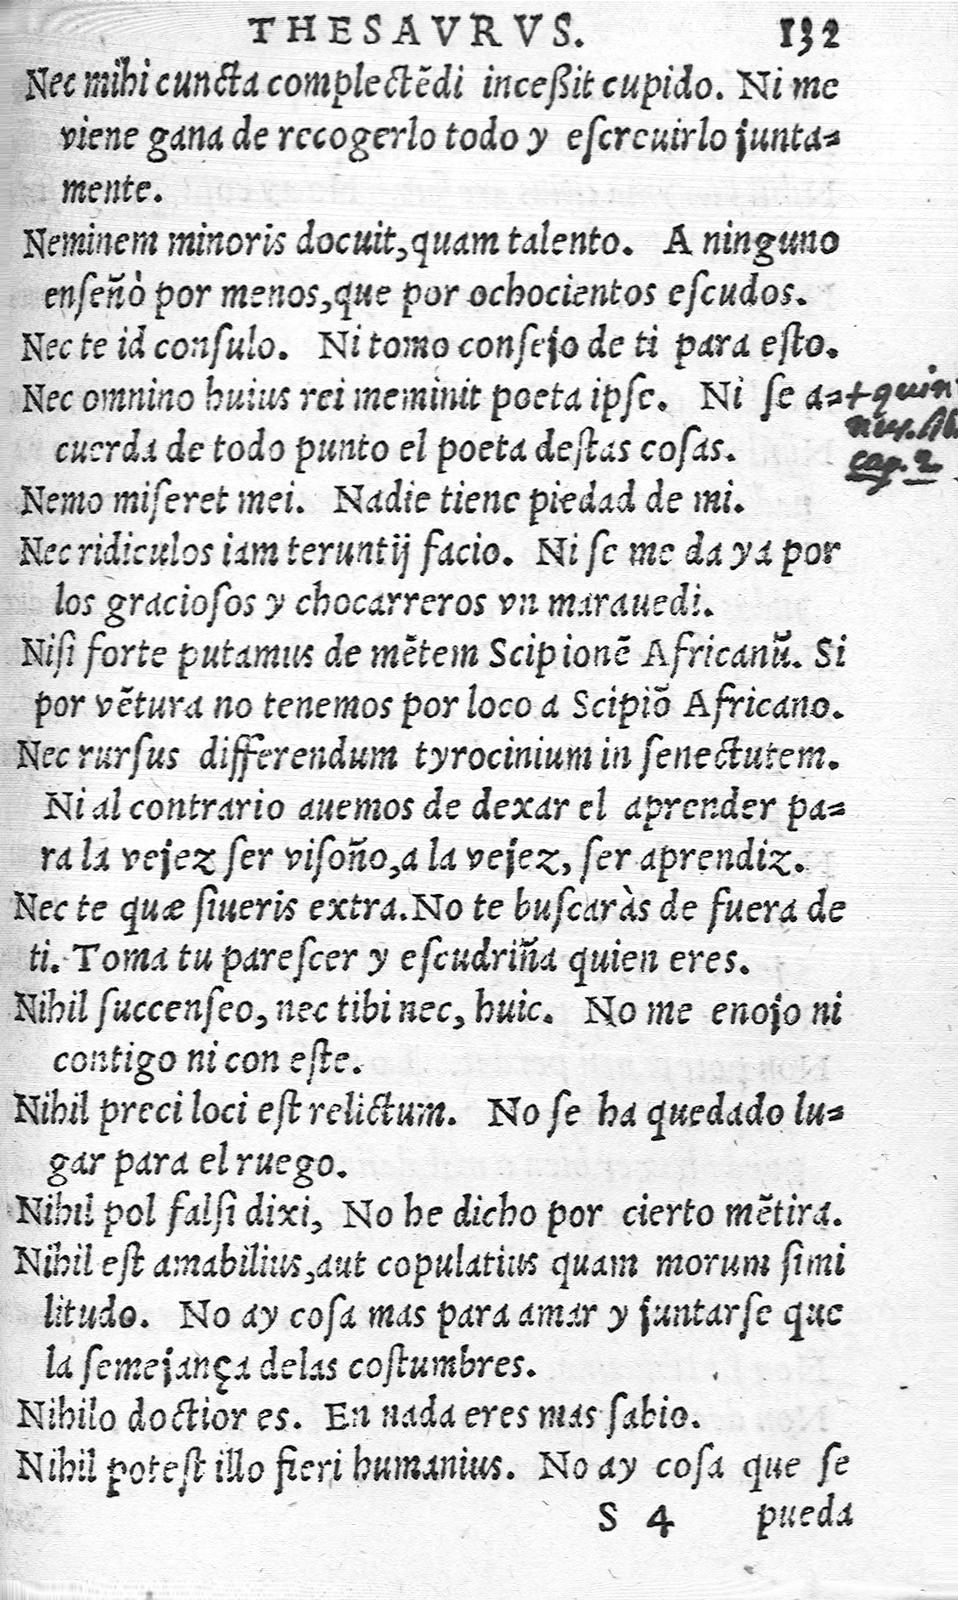 THESAVRVS. 132
Nec mihi cuncta complectẽdi inceßit cupido. Ni me
viene gana de recogerlo todo y eſcreuirlo junta=
mente.
Neminem minoris docuit,quam talento. A ninguno
enſeñò por menos,que por ochocientos eſcudos.
Nec te id conſulo. Ni tomo conſejo de ti para eſto.
Nec omnino huius rei meminit poeta ipſe. Ni ſe a=
cuerda de todo punto el poeta deſtas coſas.
cap. 2.
Nemo miſeret mei. Nadie tiene piedad de mi.
Nec ridiculos iam teruntij facio. Ni ſe me da ya por
los gracioſos y chocarreros vn marauedi.
Niſi forte putamus de mẽtem Scipionẽ Africanũ. Si
por vẽtura no tenemos por loco a Scipiõ Africano.
Nec rurſus differendum tyrocinium in ſenectutem.
Ni al contrario auemos de dexar el aprender pa=
ra la vejez ſer viſoño,a la vejez, ſer aprendiz.
Nec te quæ ſiueris extra.No te buſcaràs de fuera de
ti. Toma tu pareſcer y eſcudriña quien eres.
Nihil ſuccenſeo, nec tibi nec, huic. No me enojo ni
contigo ni con eſte.
Nihil preci loci eſt relictum. No ſe ha quedado lu=
gar para el ruego.
Nihil pol falſi dixi, No he dicho por cierto mẽtira.
Nihil eſt amabilius,aut copulatius quam morum ſimi
litudo. No ay coſa mas para amar y juntarſe que
la ſemejança delas coſtumbres.
Nihilo doctior es. En nada eres mas ſabio.
Nihil poteſt illo fieri humanius. No ay coſa que ſe
S 4 pueda